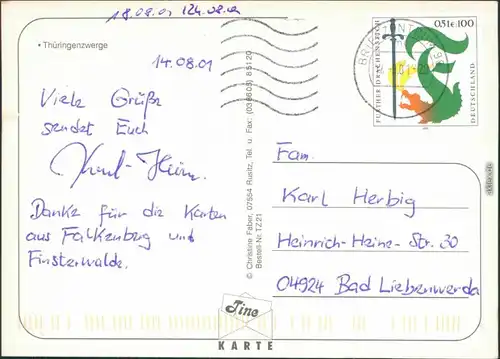 18.08.01 124.08.01
• Thüringenzwerge
14.08.01
Viele Grüße
sendet Euch
Karl-Heinz.
Danke für die Karten
aus Falkenberg und
Finsterwalde.
© Christine Faber, 07554 Rusitz, Tel. u. Fax: (036603) 85120
Bestell-Nr. TZ 21
FURTHER DRACHENSTICH
0,51€ 100
DEUTSCHLAND
Fam.
Karl Herbig
Heinrich-Heine-Str. 30
04924 Bad Liebenwerda
Tine
KARTE